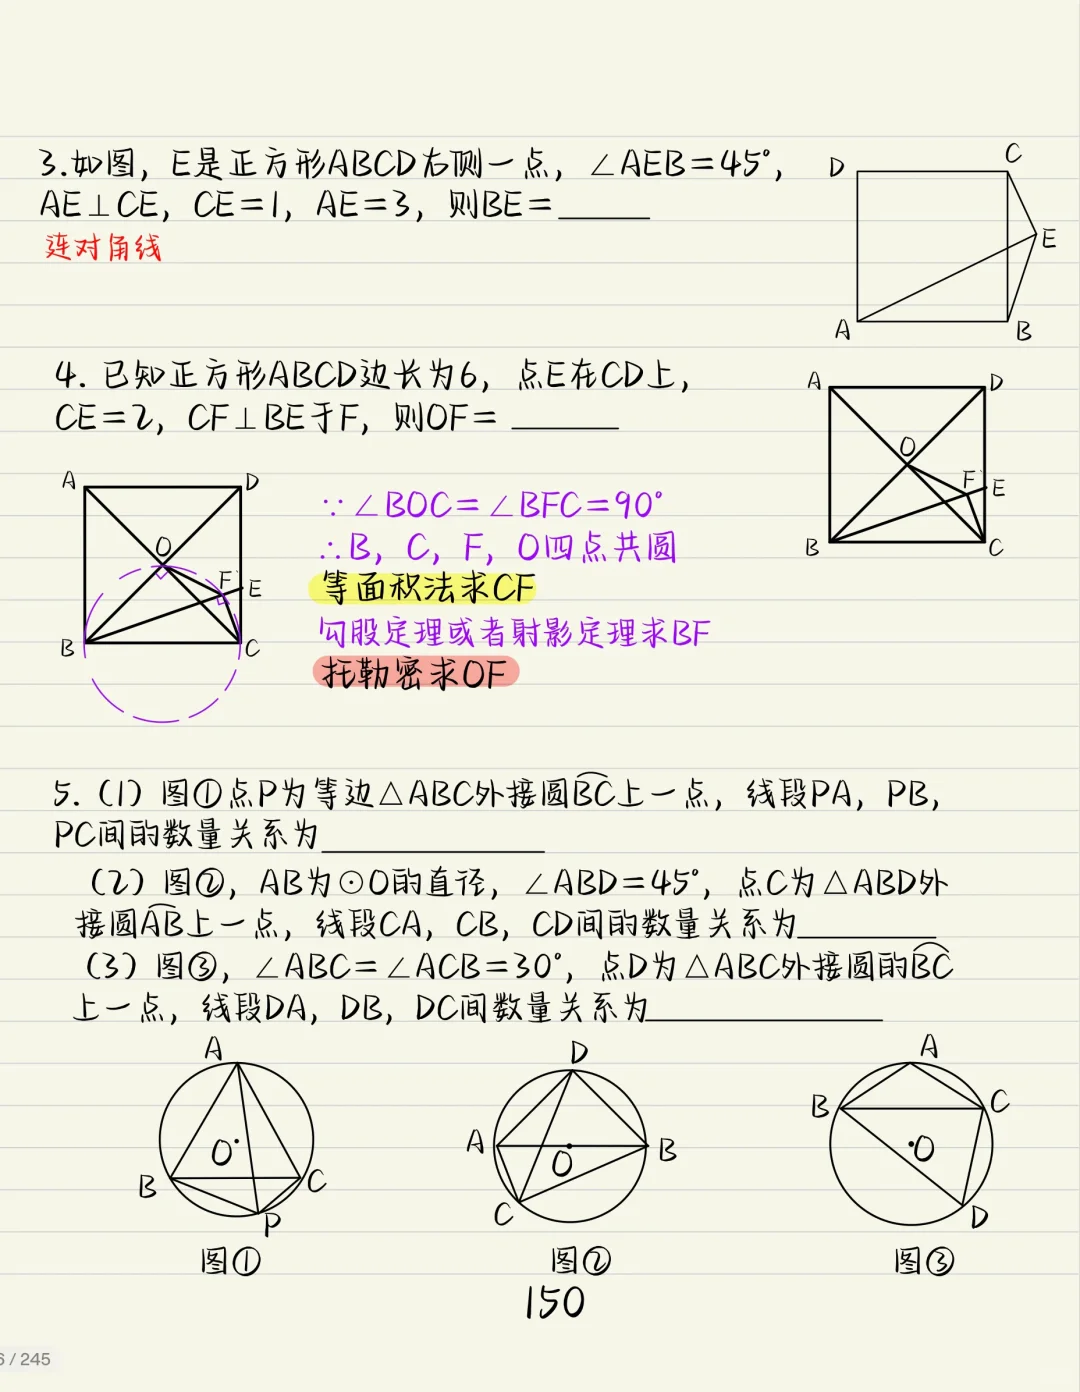 3.如图，E是正方形ABCD右侧一点，∠AEB=45°，
AE⊥CE，CE=1，AE=3，则BE=______
连对角线
D
C
E
A
B
4. 已知正方形ABCD边长为6，点E在CD上，
CE=2，CF⊥BE于F，则OF=______
A
D
O
F
E
B
C
A
D
O
F
E
B
C
∵∠BOC=∠BFC=90°
∴B，C，F，O四点共圆
等面积法求CF
勾股定理或者射影定理求BF
托勒密求OF
5.（1）图①点P为等边△ABC外接圆B͡C上一点，线段PA，PB，
PC间的数量关系为____________
（2）图②，AB为⊙O的直径，∠ABD=45°，点C为△ABD外
接圆A͡B上一点，线段CA，CB，CD间的数量关系为________
（3）图③，∠ABC=∠ACB=30°，点D为△ABC外接圆的B͡C
上一点，线段DA，DB，DC间数量关系为____________
A
O
B
C
P
图①
D
A
O
B
C
图②
A
B
C
O
D
图③
150
6 / 245